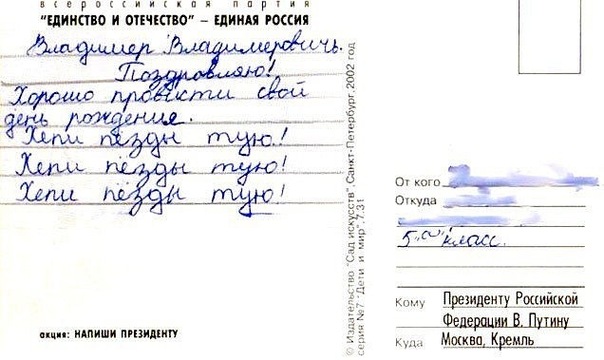 всероссийская партия
"ЕДИНСТВО И ОТЕЧЕСТВО" – ЕДИНАЯ РОССИЯ
Владимер Владимеровичь.
Поздровляю!
Хорошо провисти свой
день рождения.
Хепи пёзды тую!
Хепи пёзды тую!
Хепи пёзды тую!
акция: НАПИШИ ПРЕЗИДЕНТУ
© Издательство "Сад искусств" Санкт-Петербург, 2002 год
серия №7 "Дети и мир" 7.31
От кого
Откуда
5 "а" класс.
Кому Президенту Российской
Федерации В. Путину
Куда Москва, Кремль